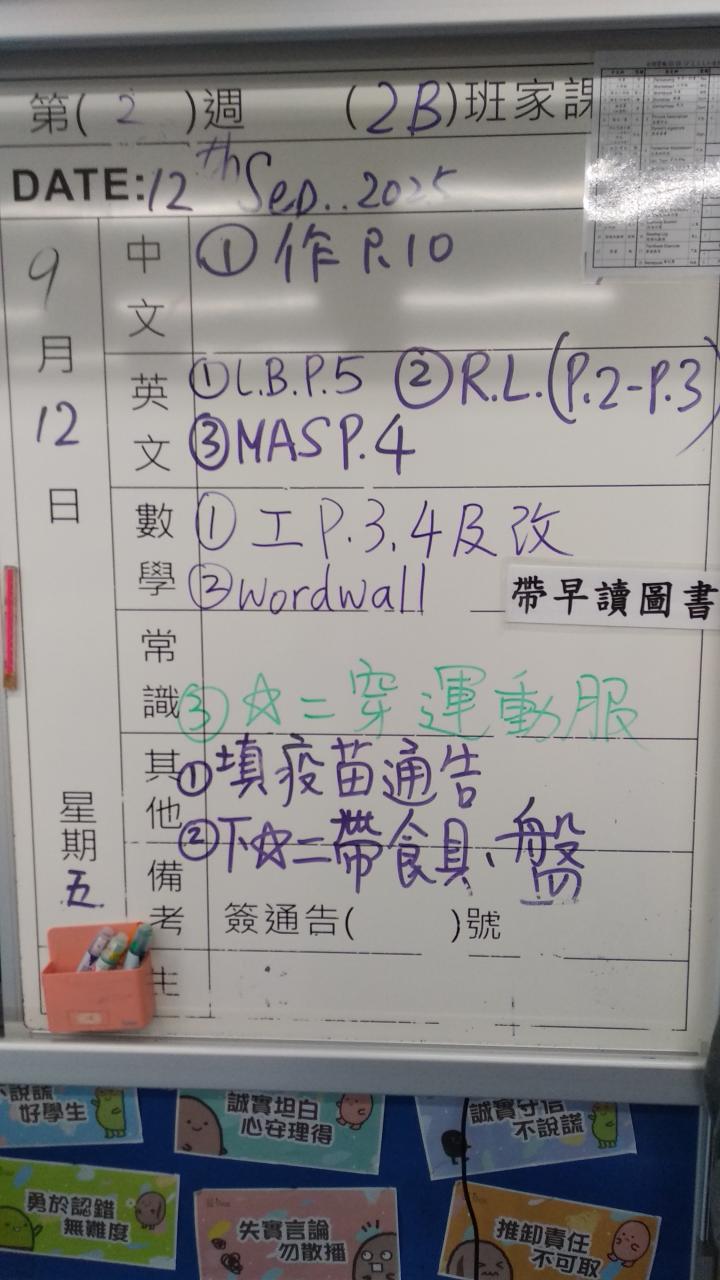 第( 2 )週 (2B)班家課
DATE: 12th Sep.. 2025
9月12日
星期五
中文
① 作 P.10
英文
① L.B.P.5 ② R.L.(P.2-P.3)
③ MAS P.4
數學
① 工 P.3,4及改
② wordwall
帶早讀圖書
常識
③ ☆二穿運動服
其他
① 填疫苗通告
② 下☆二帶食具、盤
備考
簽通告( )號
不說謊
好學生
誠實坦白
心安理得
誠實守信
不說謊
勇於認錯
無難度
失實言論
勿散播
推卸責任
不可取